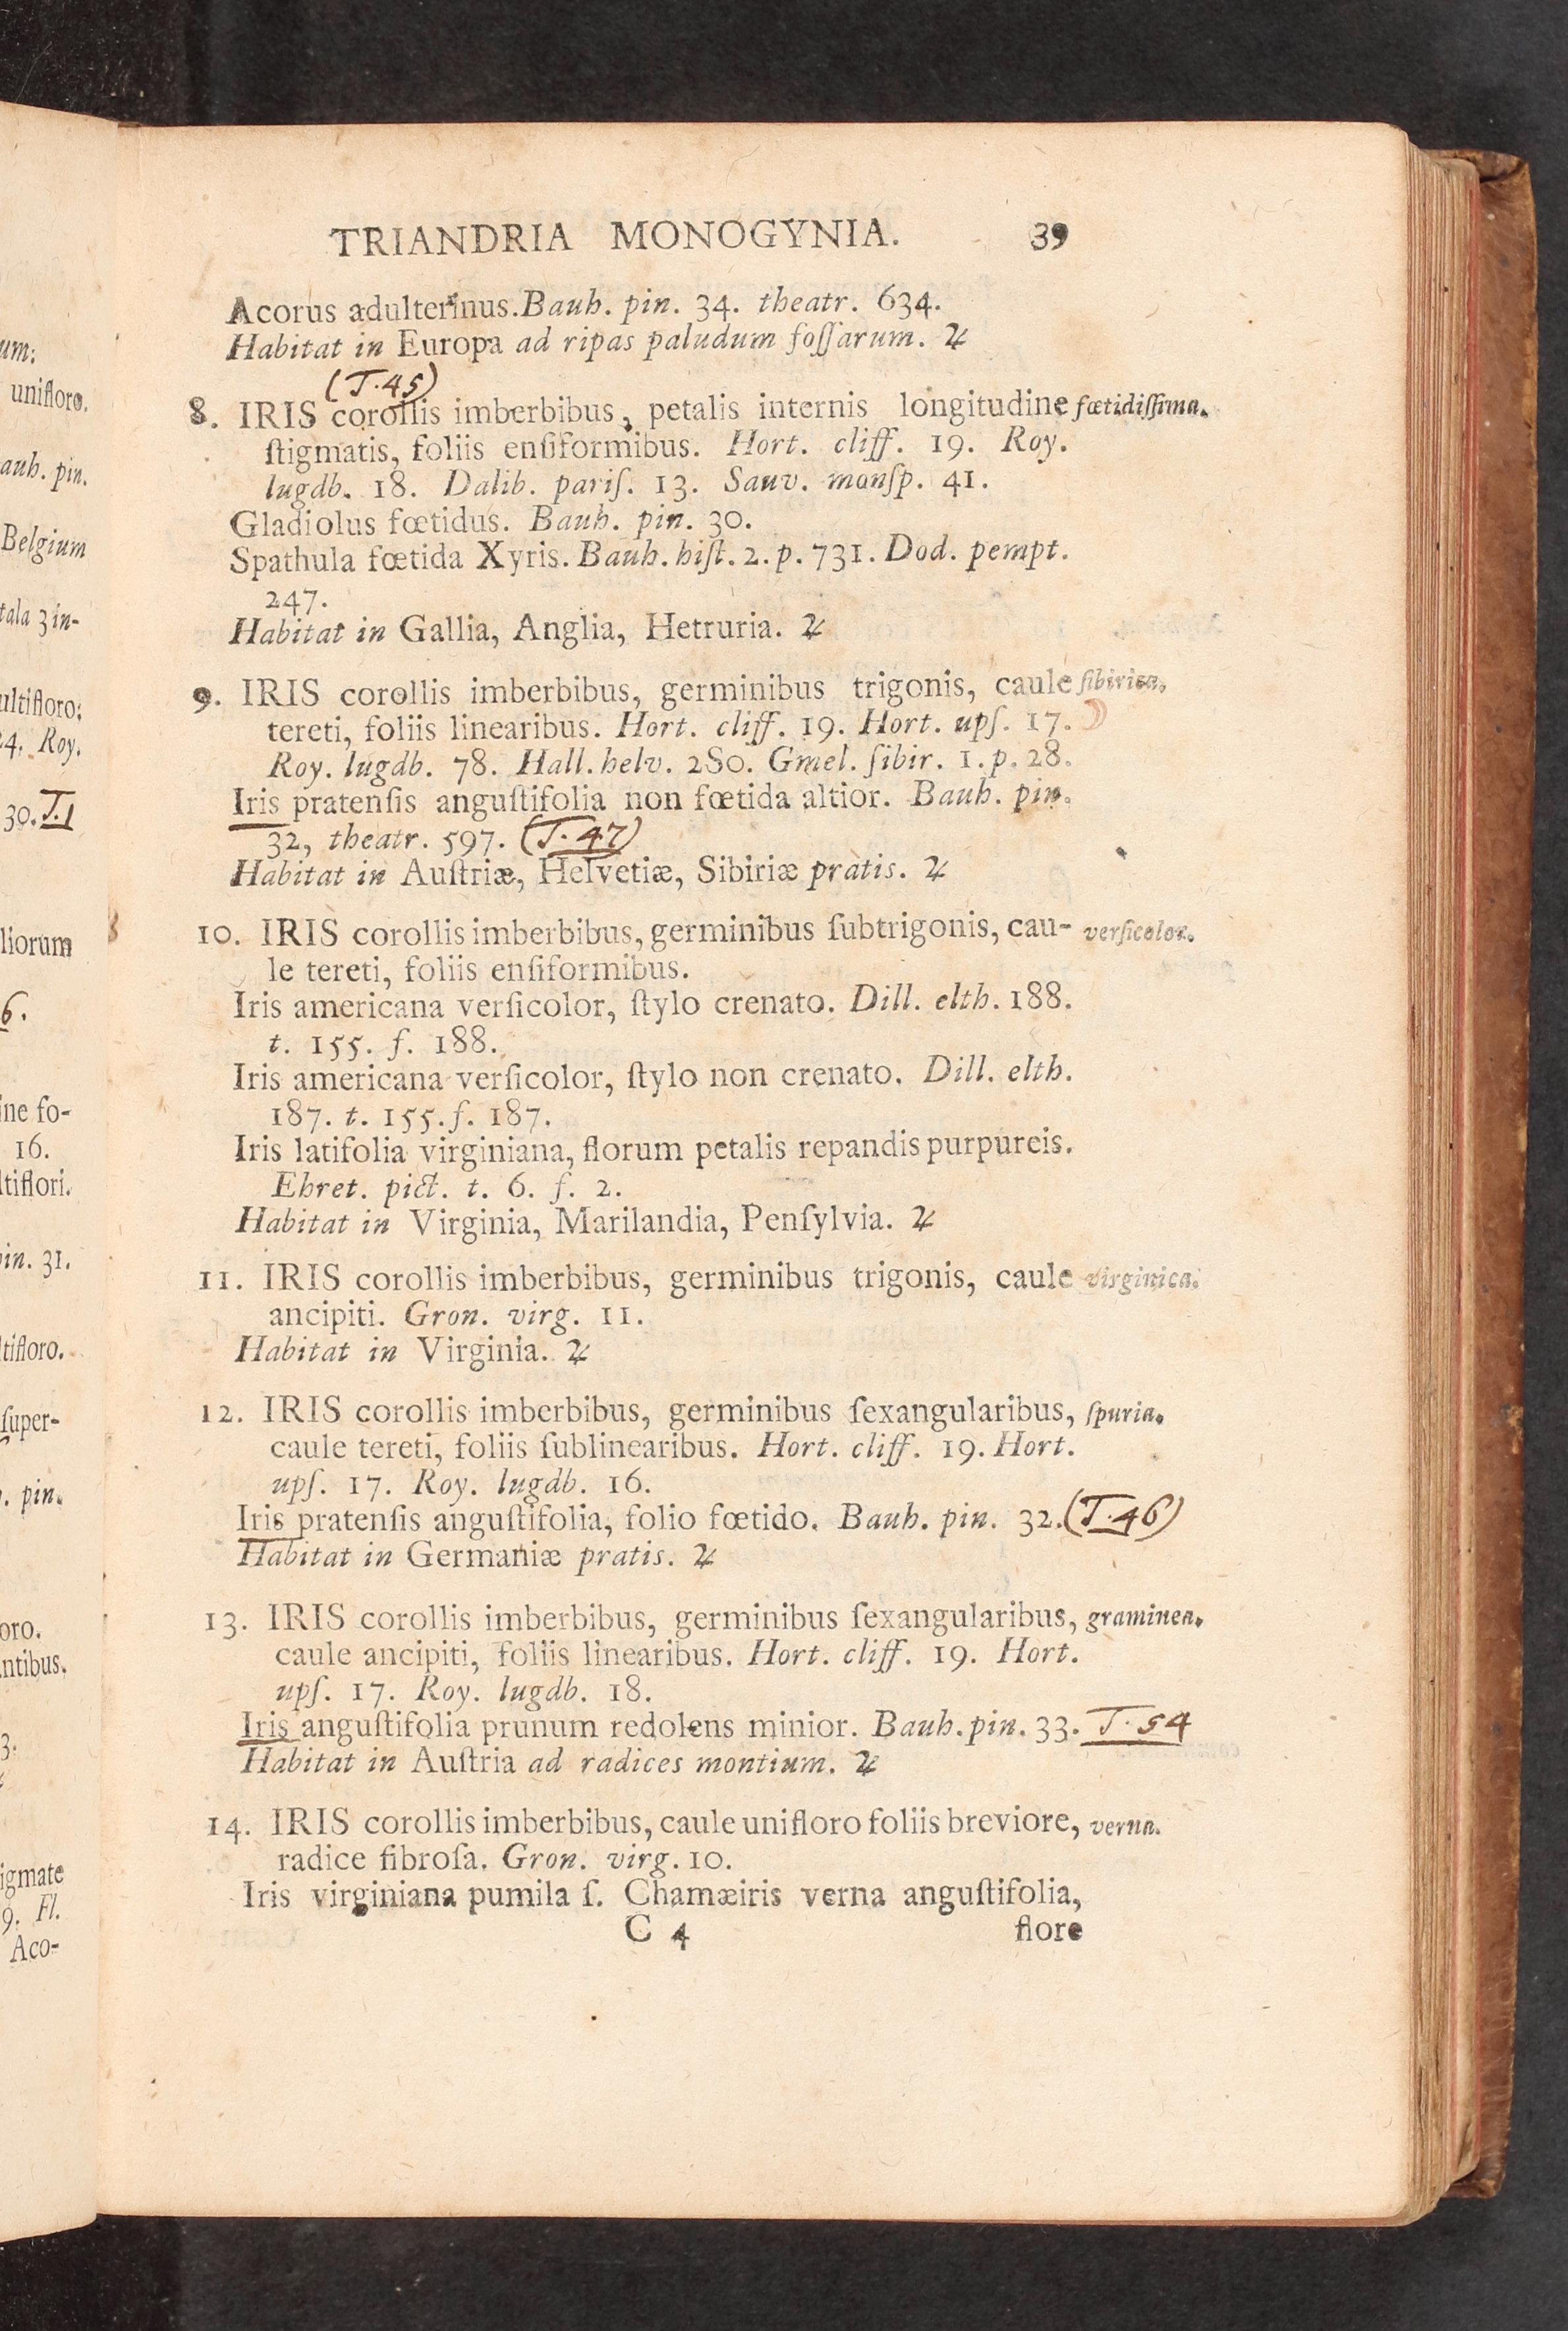 TRIANDRIA MONOGYNIA. 39
Acorus adulterinus. Bauh. pin. 34. theatr. 634.
Habitat in Europa ad ripas paludum foſſarum. ♃
(T.45)
8. IRIS corollis imberbibus, petalis internis longitudine fœtidiſſima.
ſtigmatis, foliis enſiformibus. Hort. cliff. 19. Roy.
lugdb. 18. Dalib. pariſ. 13. Sauv. monſp. 41.
Gladiolus fœtidus. Bauh. pin. 30.
Spathula fœtida Xyris. Bauh. hiſt. 2. p. 731. Dod. pempt.
247.
Habitat in Gallia, Anglia, Hetruria. ♃
9. IRIS corollis imberbibus, germinibus trigonis, caule ſibirica.
tereti, foliis linearibus. Hort. cliff. 19. Hort. upſ. 17.
Roy. lugdb. 78. Hall. helv. 280. Gmel. ſibir. 1. p. 28.
Iris pratenſis anguſtifolia non fœtida altior. Bauh. pin.
32, theatr. 597. (T.47)
Habitat in Auſtriæ, Helvetiæ, Sibiriæ pratis. ♃
10. IRIS corollis imberbibus, germinibus ſubtrigonis, cau- verſicolor.
le tereti, foliis enſiformibus.
Iris americana verſicolor, ſtylo crenato. Dill. elth. 188.
t. 155. f. 188.
Iris americana verſicolor, ſtylo non crenato. Dill. elth.
187. t. 155. f. 187.
Iris latifolia virginiana, florum petalis repandis purpureis.
Ehret. pict. t. 6. f. 2.
Habitat in Virginia, Marilandia, Penſylvia. ♃
11. IRIS corollis imberbibus, germinibus trigonis, caule virginica.
ancipiti. Gron. virg. 11.
Habitat in Virginia. ♃
12. IRIS corollis imberbibus, germinibus ſexangularibus, ſpuria.
caule tereti, foliis ſublinearibus. Hort. cliff. 19. Hort.
upſ. 17. Roy. lugdb. 16.
Iris pratenſis anguſtifolia, folio fœtido. Bauh. pin. 32. (T.46)
Habitat in Germaniæ pratis. ♃
13. IRIS corollis imberbibus, germinibus ſexangularibus, graminea.
caule ancipiti, foliis linearibus. Hort. cliff. 19. Hort.
upſ. 17. Roy. lugdb. 18.
Iris anguſtifolia prunum redolens minior. Bauh. pin. 33. T.54
Habitat in Auſtria ad radices montium. ♃
14. IRIS corollis imberbibus, caule unifloro foliis breviore, verna.
radice fibroſa. Gron. virg. 10.
Iris virginiana pumila ſ. Chamæiris verna anguſtifolia,
C 4 flore
um:
unifloro.
auh. pin.
Belgium
tala 3 in-
ultifloro;
4. Roy.
30. T.1
liorum
6.
ine fo-
16.
ltiflori.
pin. 31.
ltifloro.
ſuper-
. pin.
oro.
ntibus.
3.
igmate
9. Fl.
Aco-